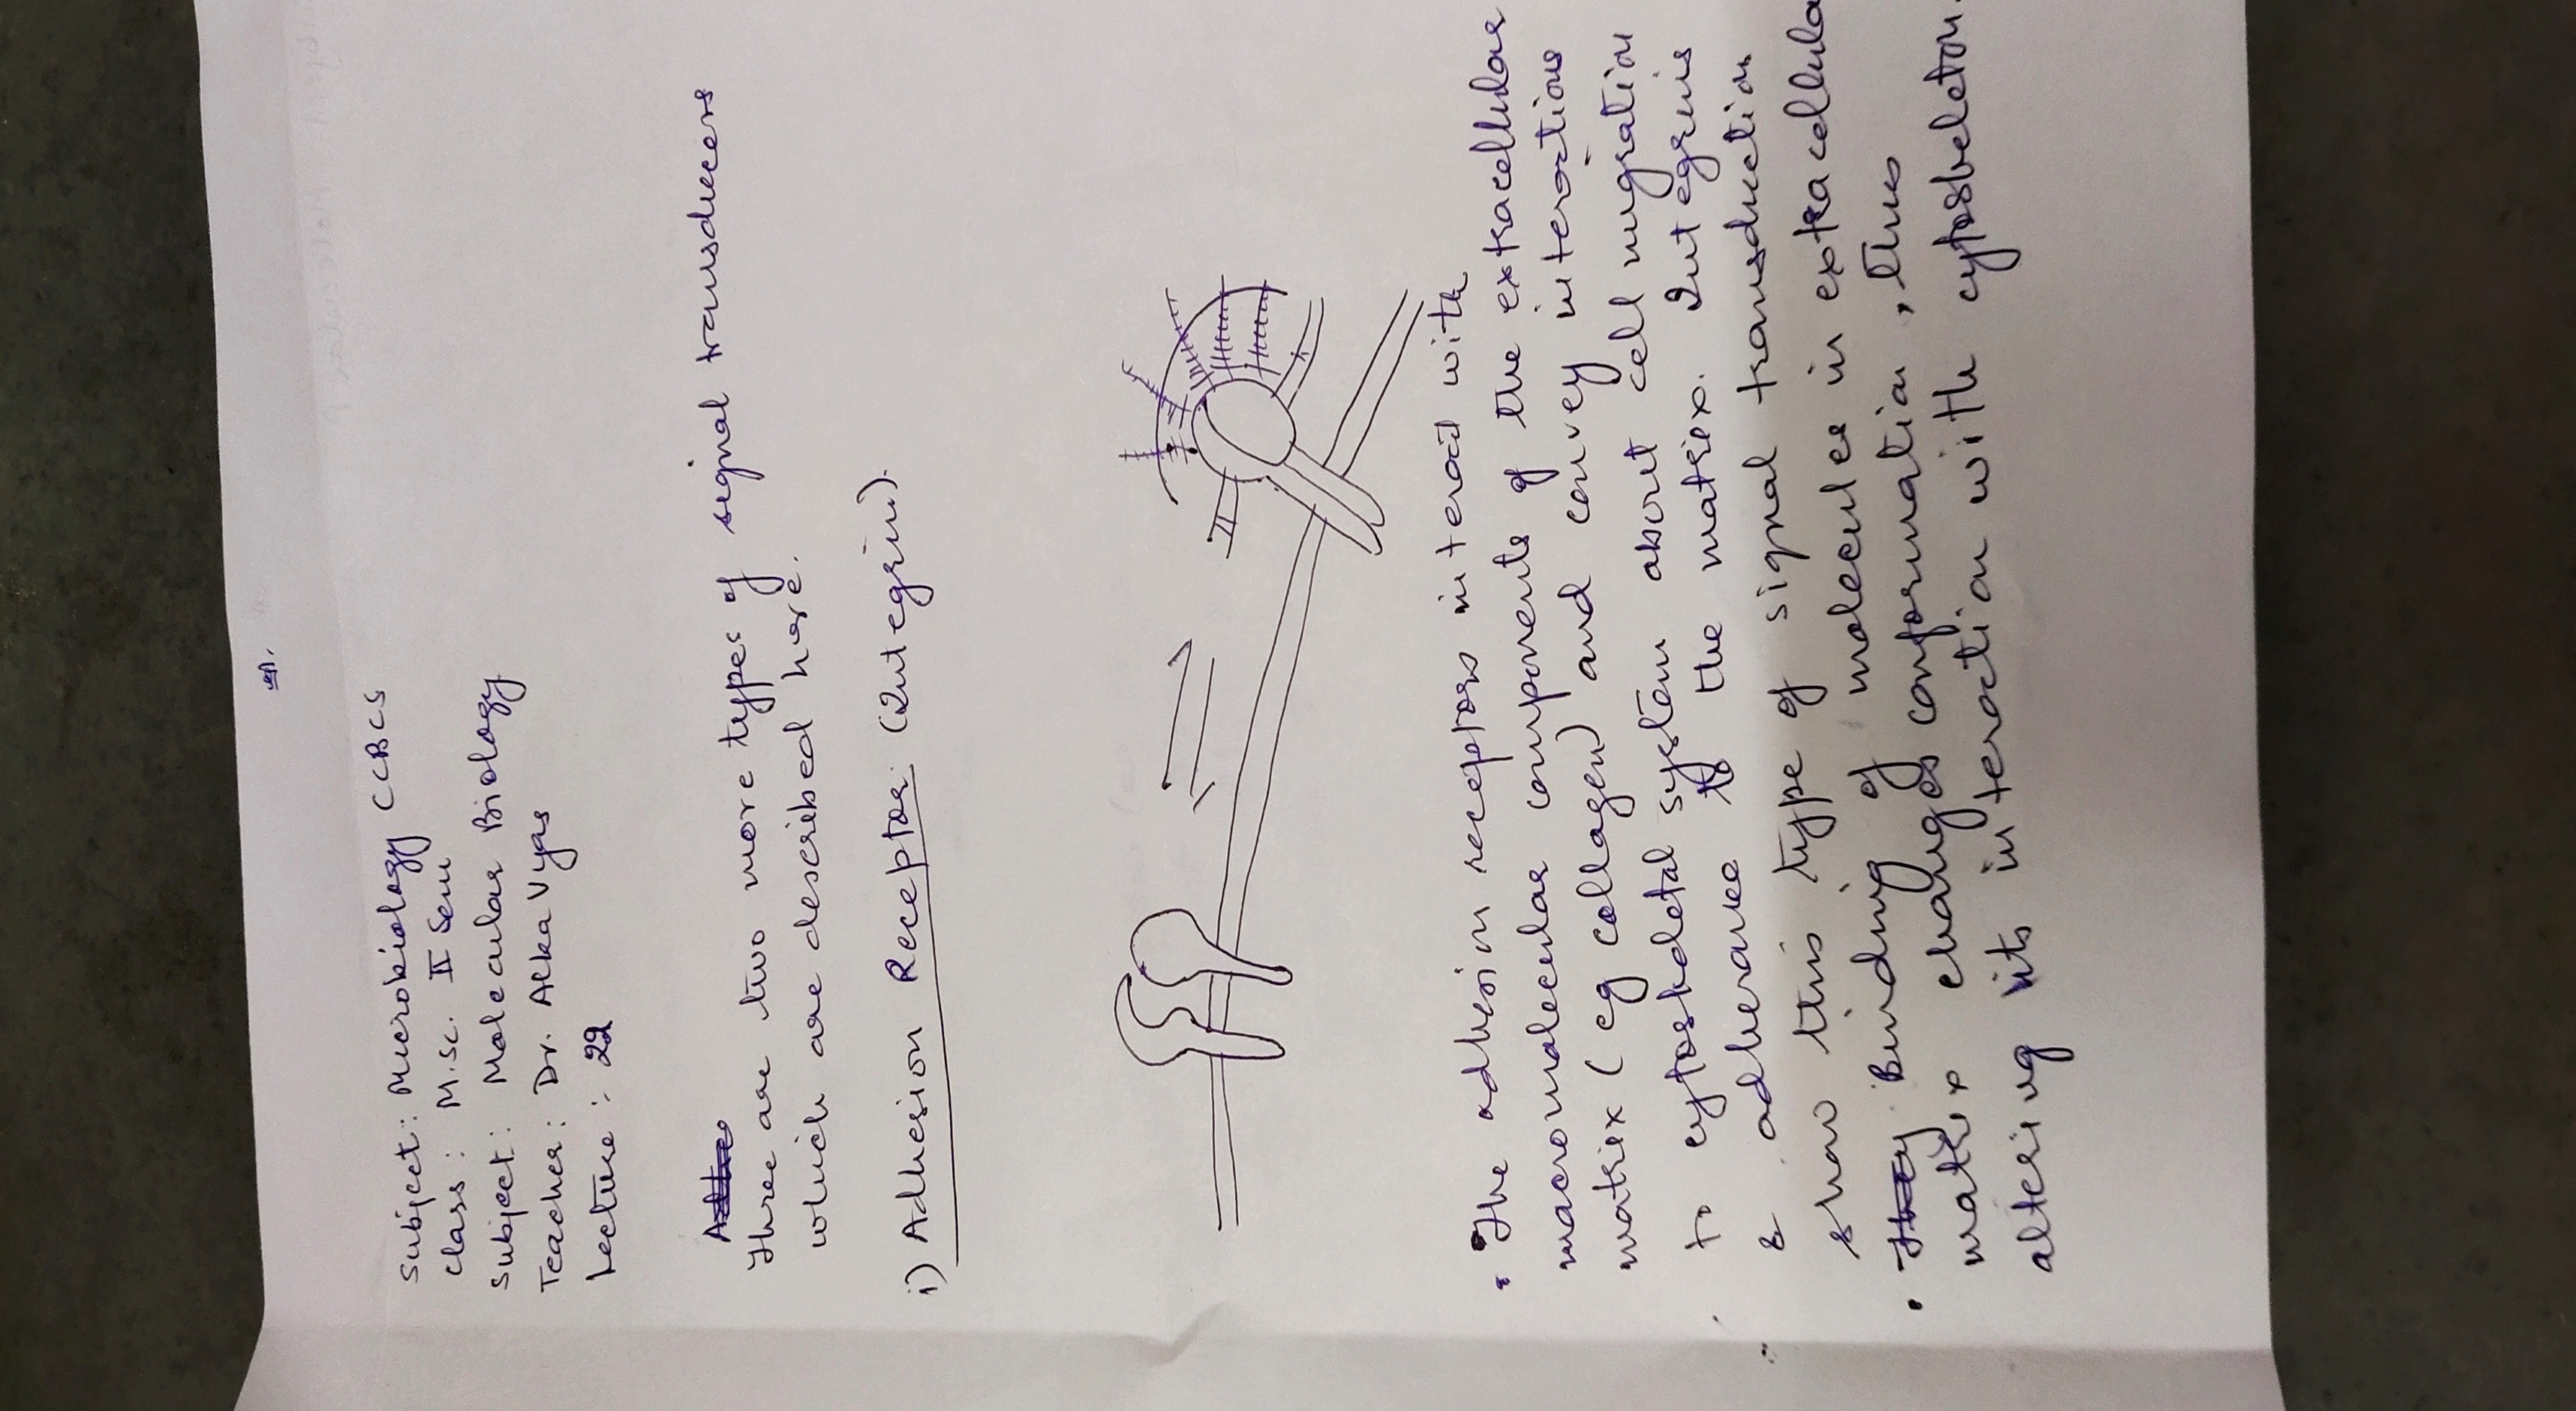 Subject: Microbiology CCBCS
Class: M.Sc. II Sem
Subject: Molecular Biology
Teacher: Dr. Alka Vyas
Lecture: 22
There are two more types of signal transducers
which are described here.
i) Adhesion Receptor: (Integrin).
• The adhesion receptors interact with
macromolecular components of the extracellular
matrix (eg collagen) and convey interactions
to cytoskeletal system about cell migration
& adherance to the matrix. Integrins
show this type of signal transduction
• Binding of molecules in extracellula
matrix changes conformation, thus
altering its interaction with cytoskeleton.